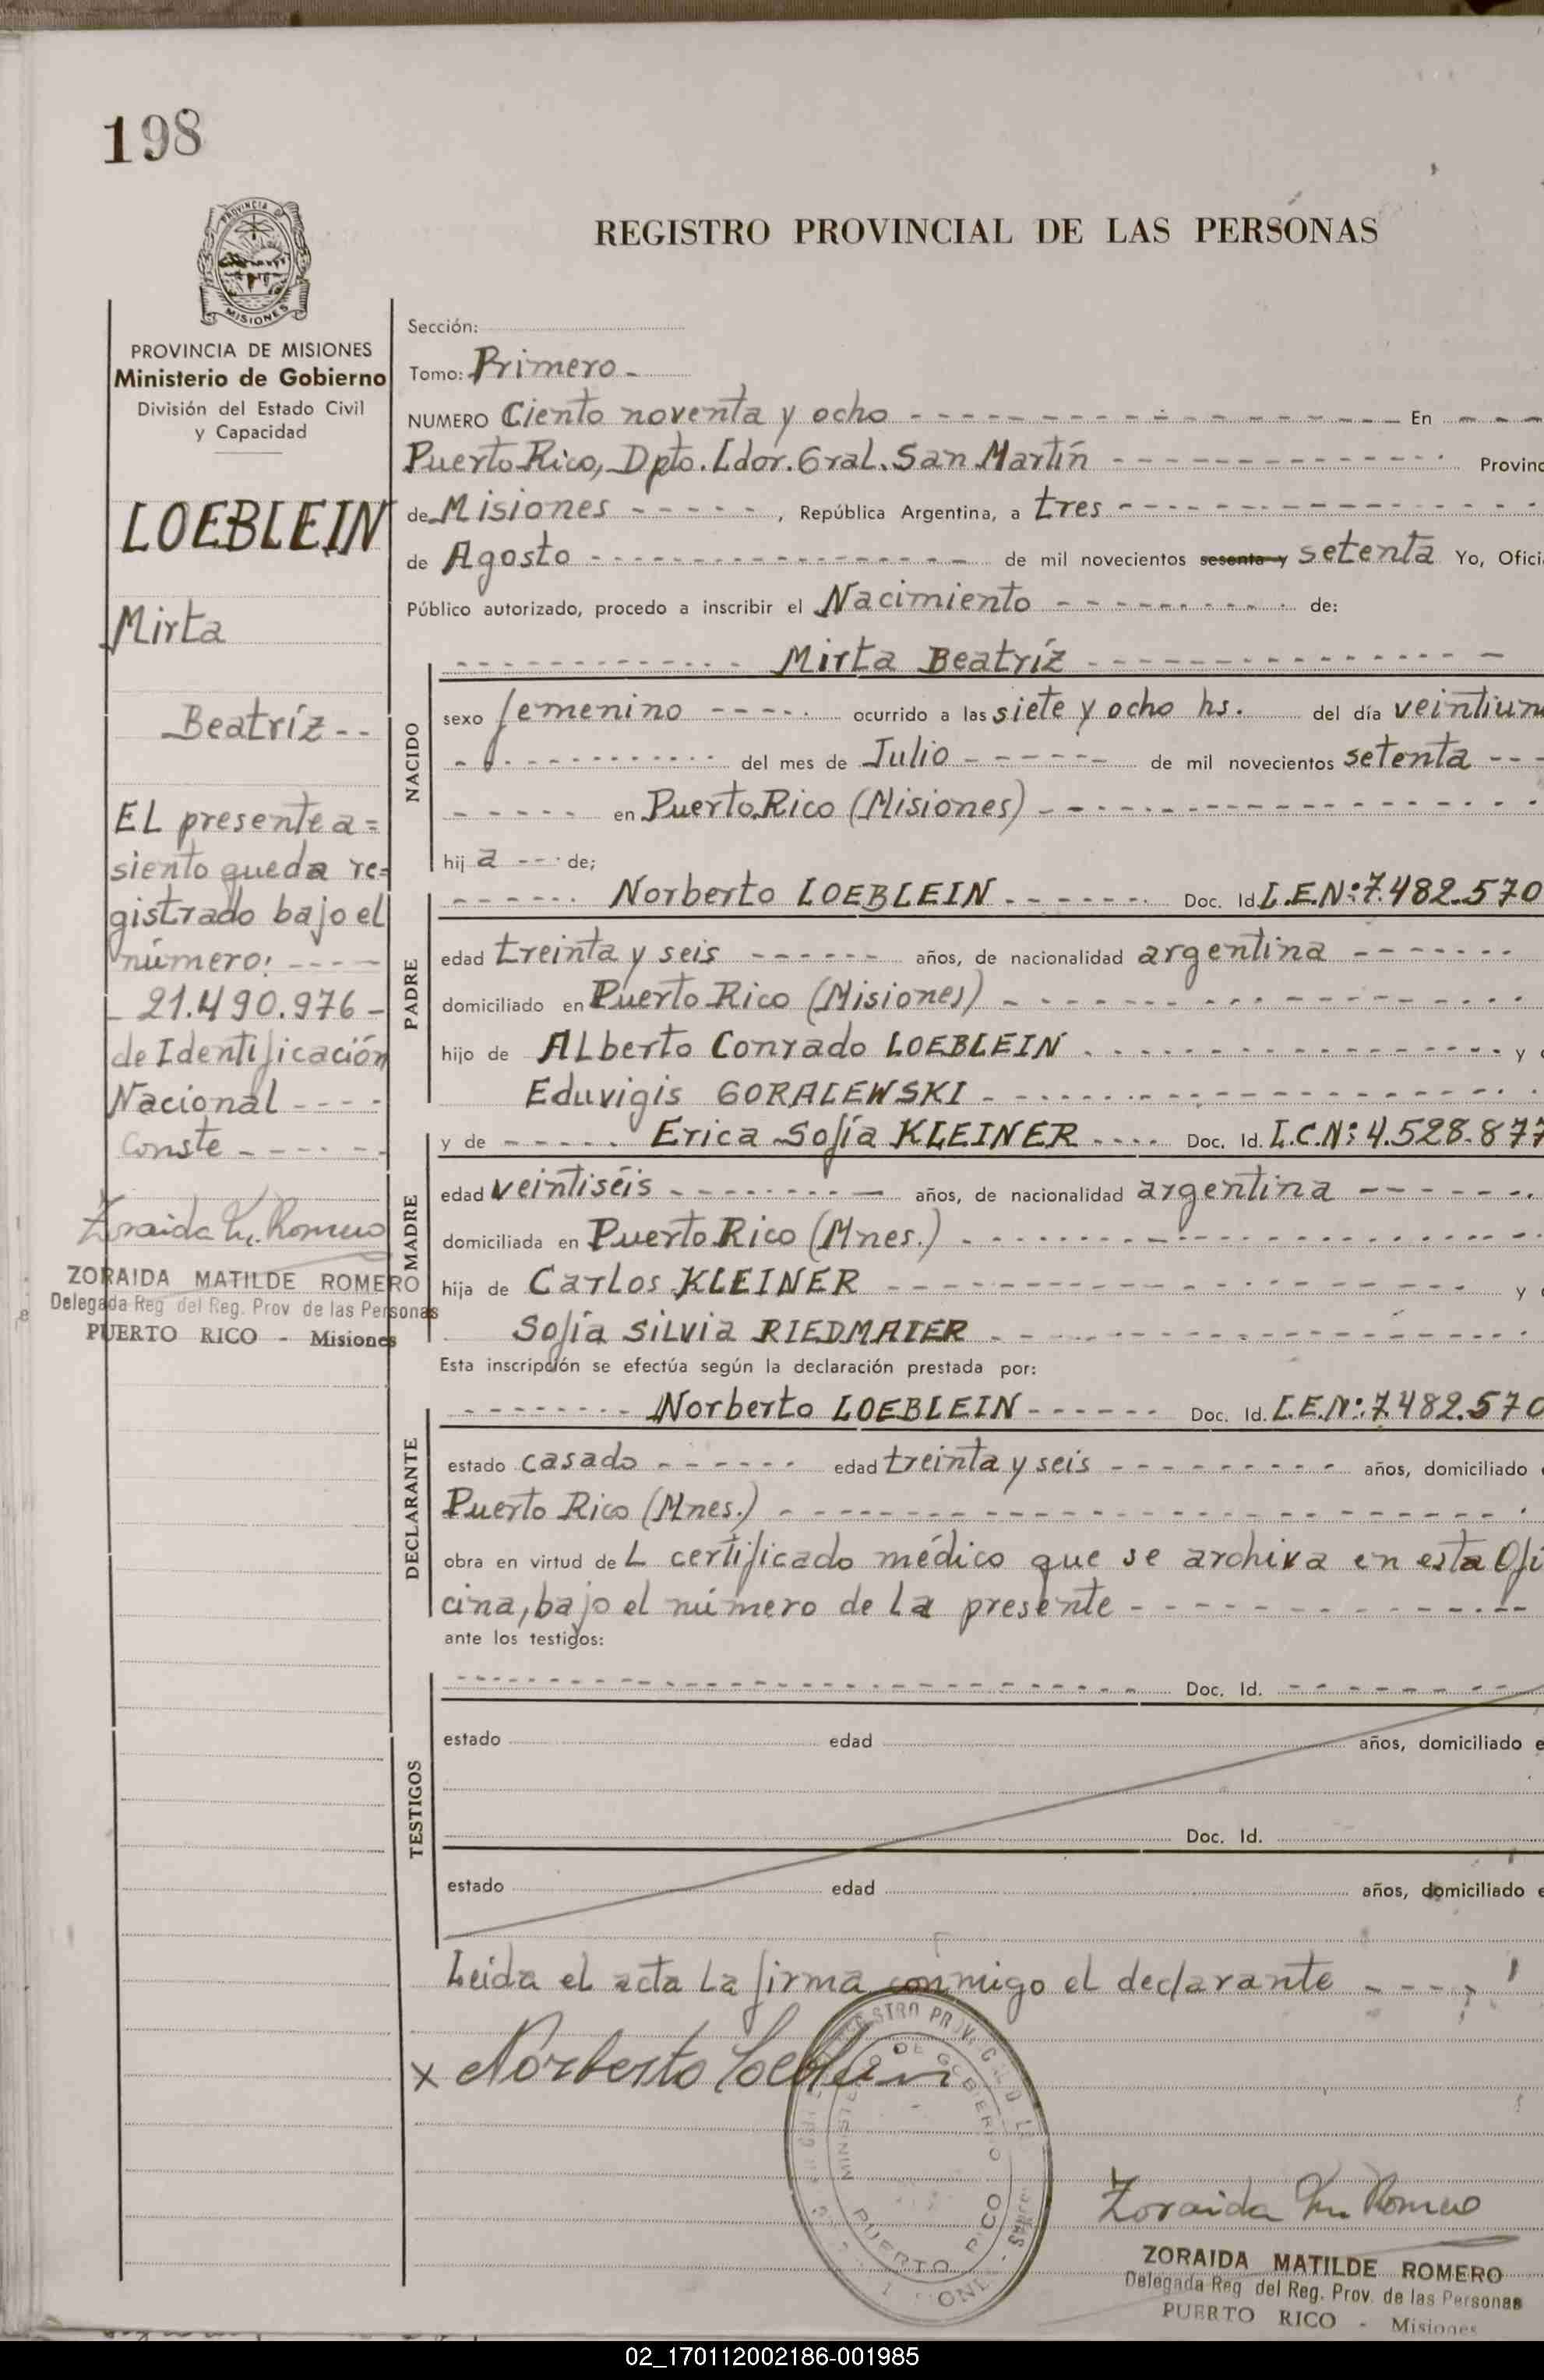 198
PROVINCIA DE
MISIONES
REGISTRO PROVINCIAL DE LAS PERSONAS
PROVINCIA DE MISIONES
Ministerio de Gobierno
División del Estado Civil
y Capacidad
LOEBLEIN
Mirta
Beatríz - -
EL presente a=
siento queda re=
gistrado bajo el
número: - - - -
- 21.490.976 -
de Identificación
Nacional - - - -
Conste - - - - - -
Zoraida M. Romero
ZORAIDA MATILDE ROMERO
Delegada Reg del Reg. Prov de las Personas
PUERTO RICO - Misiones
Sección:
Tomo: Primero -
NUMERO Ciento noventa y ocho - - - - En - - -
Puerto Rico, Dpto. Ldor. Gral. San Martín - - - - Provinc
de Misiones - - - - - , República Argentina, a tres - - - -
de Agosto - - - - de mil novecientos sesenta y setenta Yo, Ofici
Público autorizado, procedo a inscribir el Nacimiento - - - - de:
NACIDO
- - - - Mirta Beatríz - - - -
sexo femenino - - - - ocurrido a las siete y ocho hs. del día veintiun
- - - - del mes de Julio - - - - de mil novecientos setenta - - -
- - - - en Puerto Rico (Misiones) - - - -
hij a - - - de;
PADRE
- - - - Norberto LOEBLEIN - - - - Doc. Id. L.E.Nº: 7.482.570
edad treinta y seis - - - - años, de nacionalidad argentina - - - -
domiciliado en Puerto Rico (Misiones) - - - -
hijo de ALberto Conrado LOEBLEIN - - - - y
Eduvigis GORALEWSKI - - - -
MADRE
y de - - - - Erica Sofía KLEINER - - - - Doc. Id. L.C.Nº: 4.528.877
edad veintiséis - - - - años, de nacionalidad argentina - - - -
domiciliada en Puerto Rico (Mnes.) - - - -
hija de Carlos KLEINER - - - - y
Sofía SiLvia RIEDMAIER - - - -
Esta inscripción se efectúa según la declaración prestada por:
DECLARANTE
- - - - Norberto LOEBLEIN - - - - Doc. Id. L.E.Nº: 7.482.570
estado casado - - - - edad treinta y seis - - - - años, domiciliado
Puerto Rico (Mnes.) - - - -
obra en virtud de L certificado médico que se archiva en esta Ofi
cina, bajo el número de La presente - - - -
ante los testigos:
TESTIGOS
- - - - Doc. Id. - - - -
estado edad años, domiciliado e
Doc. Id.
estado edad años, domiciliado e
Leida el acta La firma conmigo el declarante - - - -
x Norberto Loeblein
MINISTERIO DE GOBIERNO
PUERTO RICO
Zoraida M. Romero
ZORAIDA MATILDE ROMERO
Delegada Reg del Reg. Prov. de las Personas
PUERTO RICO - Misiones
02_170112002186-001985